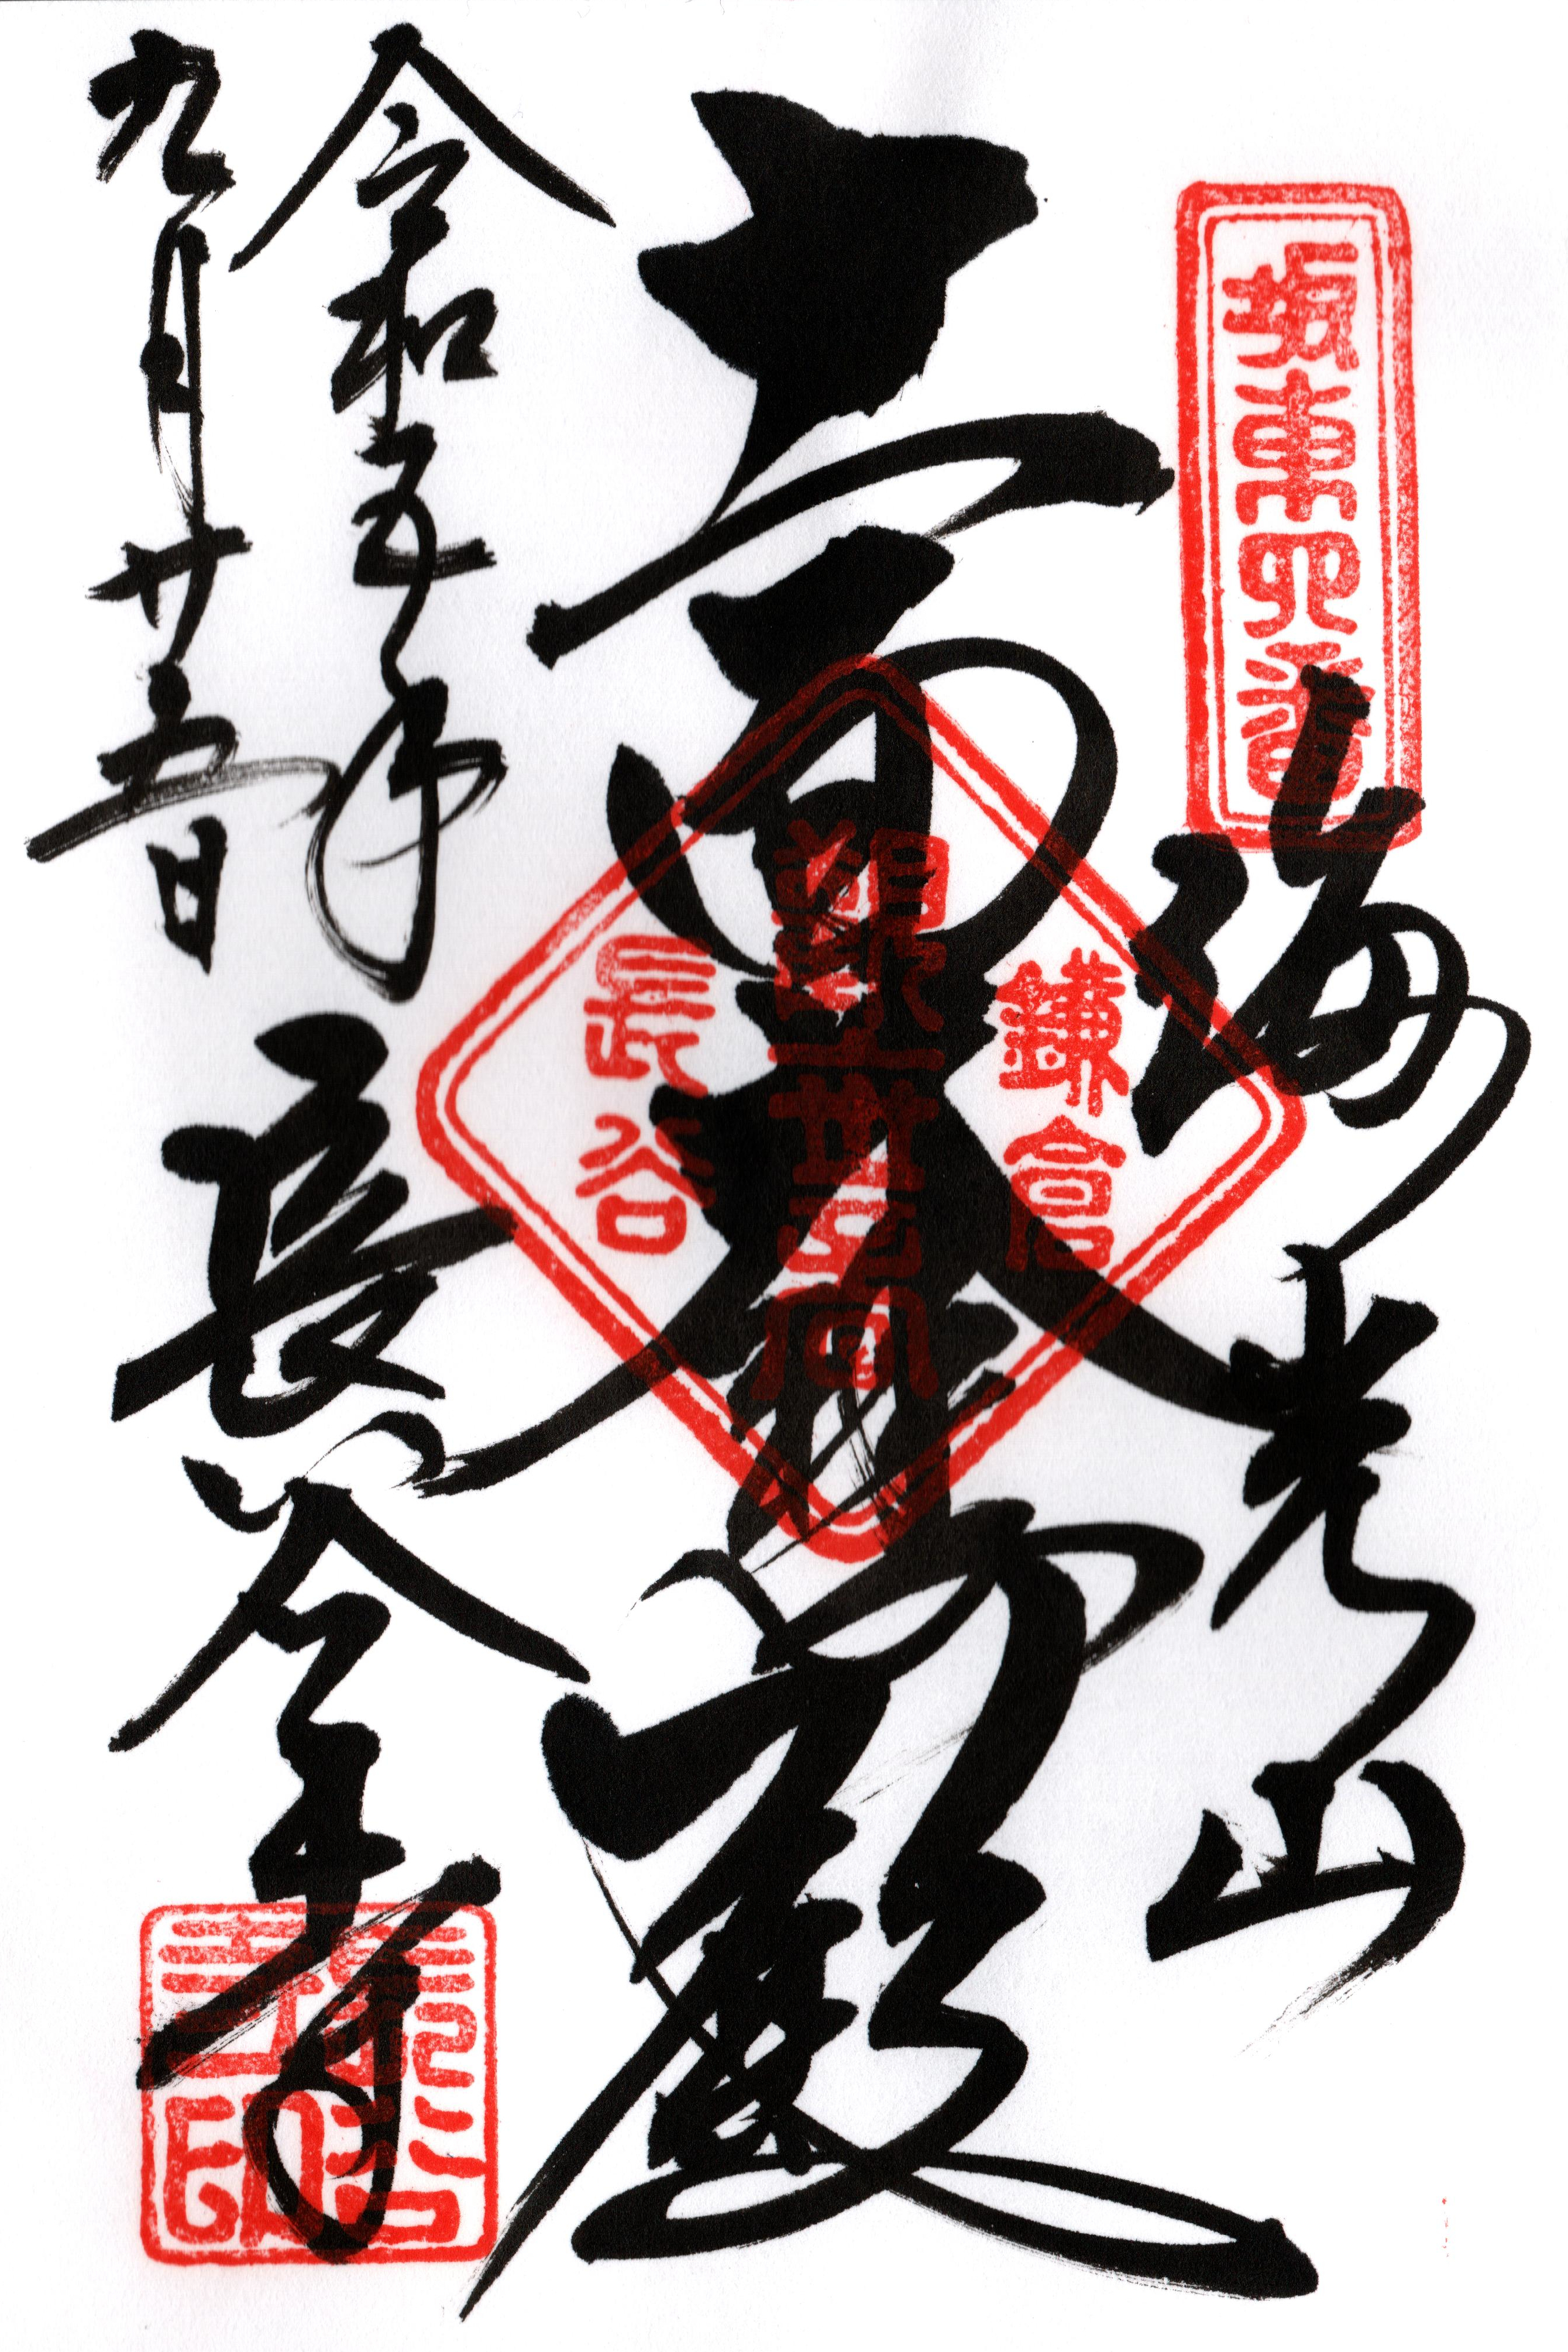 坂東四番
海光山
十一面大悲殿
鎌倉
長谷
令和五年
九月廿五日
長谷寺
長谷寺印